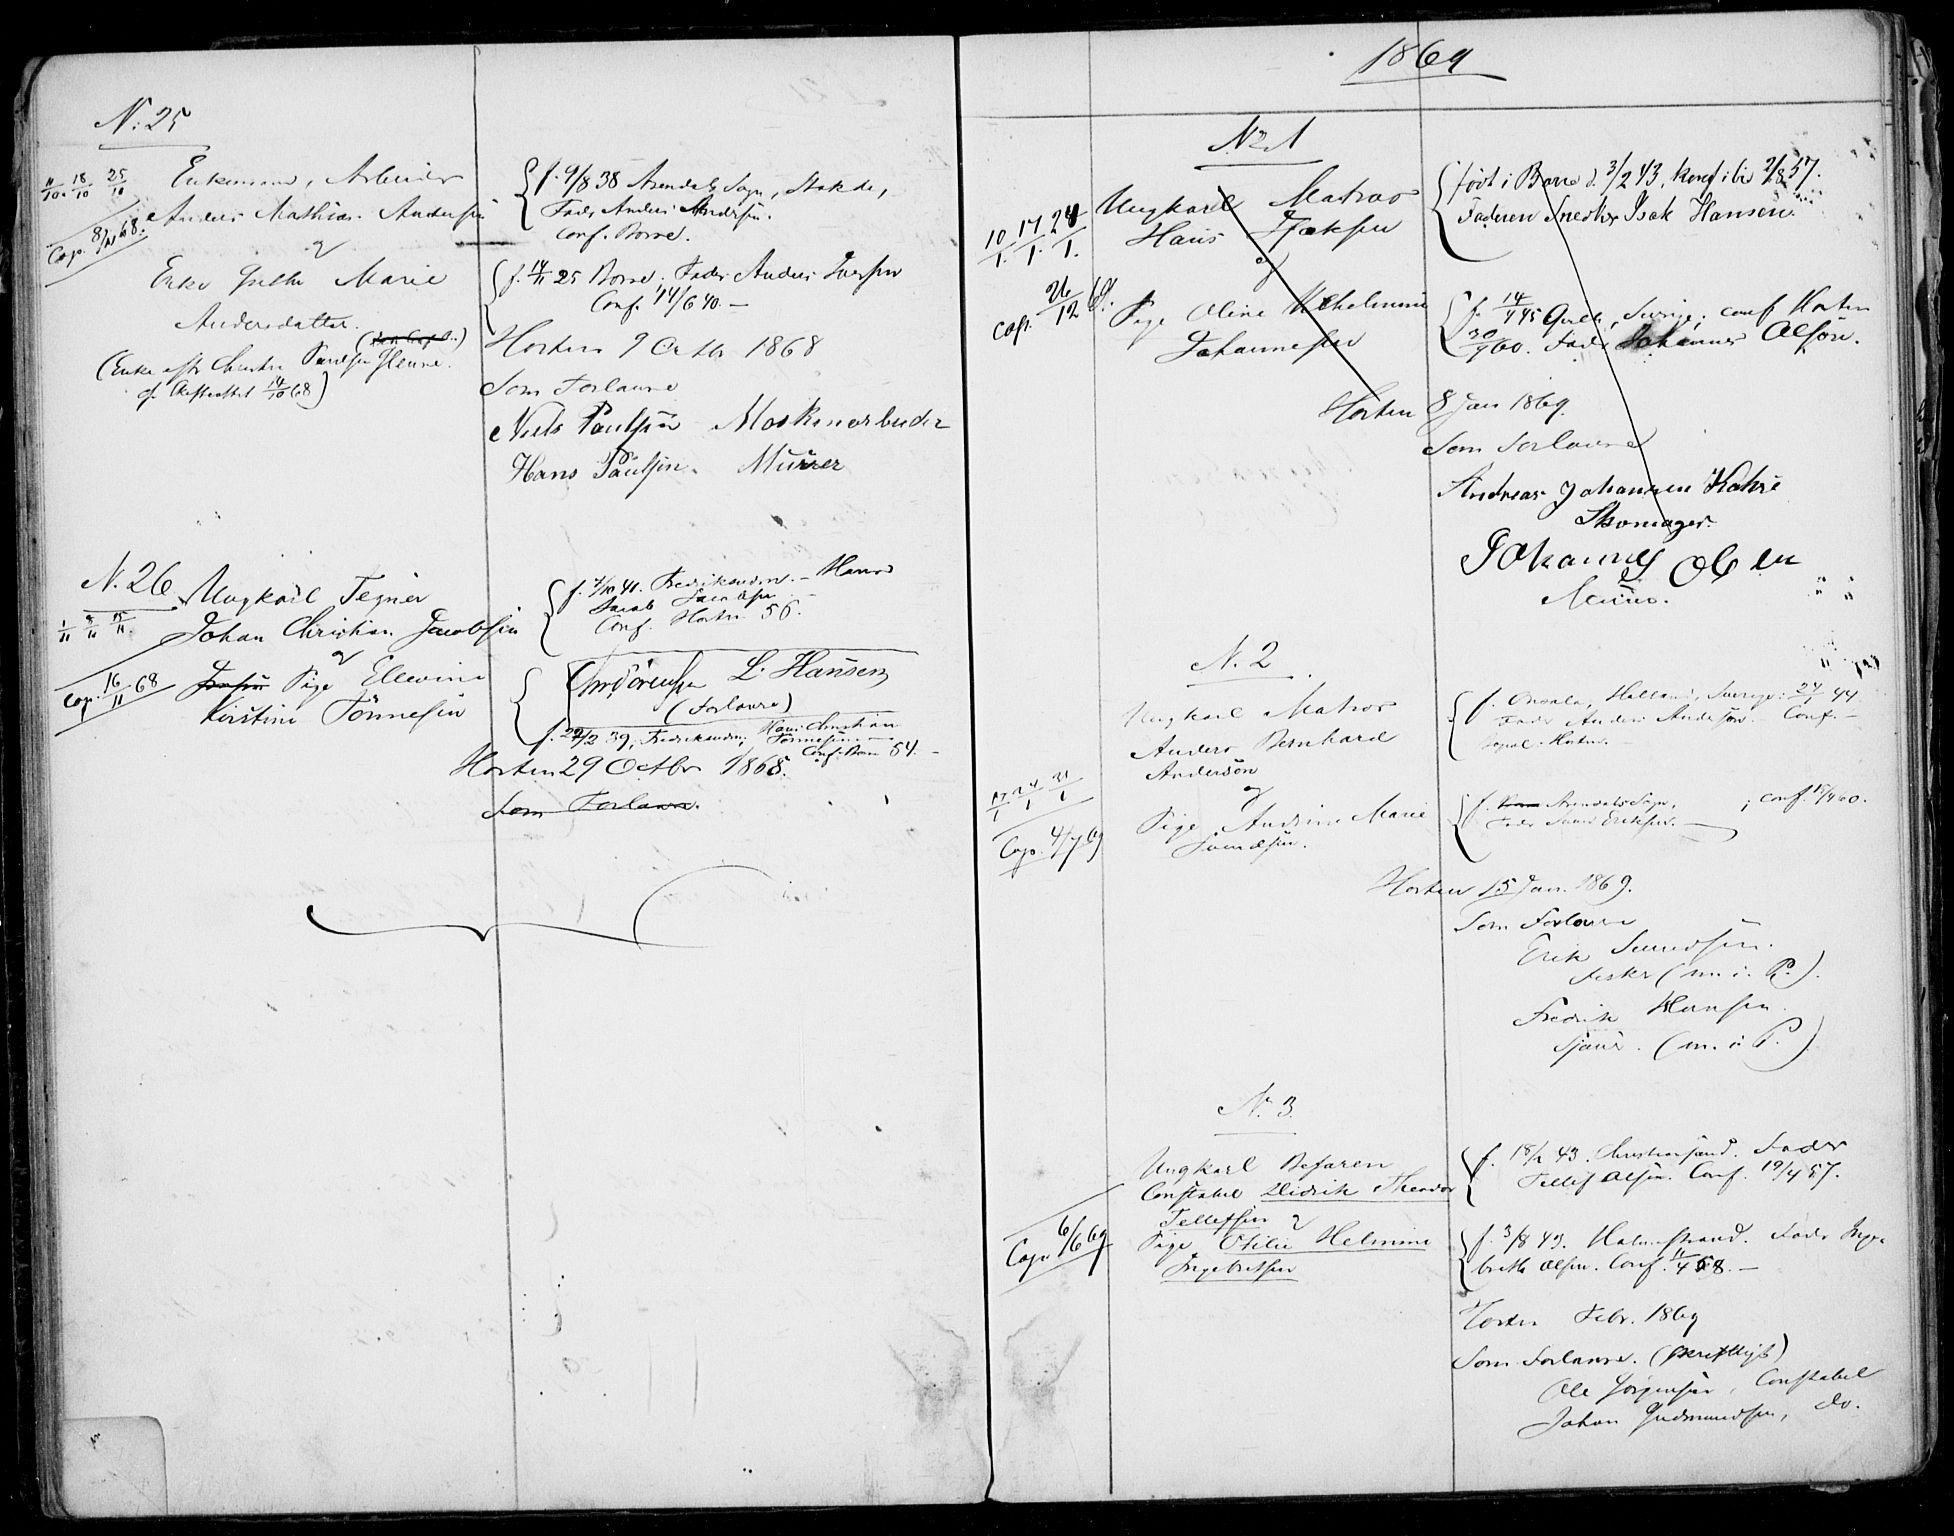 N. 25
11/10. 18/10 25/10
Enkemand, Arbeider
Anders Mathias Andersen
Cop. 8/11 68.
&
Enke Marie
Andersdatter.
(Enke efter Paulsen
14/10 68)
f. 9/8 38 Arendals Sogn, Stokke,
Fader Anders Andersen.
Conf. Borre.
f. 14/11 25 Borre. Fader Anders Iversen
Conf. 14/6 40. —
Horten 9 Octbr 1868
Som Forlovere
Niels Paulsen Maskinarbeider
Hans Paulsen. Murer
N. 26
1/11 8/11 15/11.
Ungkarl Tegner
Johan Christian Jacobsen
&
Cop. 16/11 68
Pige Ellevine
Kirstine Tønnesen
f. 7/10 41. Frederiksværn. —
Jacob Jacobsen
Conf. Horten 56.
Chr Sørensen L. Hansen
(Forlovere)
f. 22/2 39, Frederiksværn, Hans Christian
Tønnesen
Conf. Borre 54. —
Horten 29 Octbr 1868.
Som Forlovere.
1869
No 1
10/1. 17/1. 24/1.
Ungkarl Matros
Hans Isaksen
og
Cop. 26/12 69.
Pige Oline Wilhelmine
Johannesen
født i Borre d. 3/2 43, Konf ibid 2/8 57.
Faderen Snedker Isak Hansen.
f. 14/4 45 Sverige; conf Horten
30/9 60. Fader Johannes Olsøn.
Horten 8 Jan 1869.
Som Forlovere
Andreas Johansen
Skomager.
Johannes Olsen
N. 2
Ungkarl Matros
Anders Bernhard
Andersøn
og
17/1 24/1 31/1
Cop. 4/7 69
Pige Andrine Marie
Svendsen.
f. Onsala, Halland, Sverige: 27/1 44
Fader Anders Andersøn. — Conf. —
f. Arendals Sogn, ; conf. 15/4 60.
Fader Svend Eriksen. —
Horten 15 Jan. 1869.
Som Forlovere
Erik Svendsen.
Fisker (m. i. P.).
Fredrik Hansen.
Sjouer. (m. i. P.)
N. 3.
Ungkarl Befaren
Constabel Didrik Theodor
Tellefsen &
Cop. 6/6 69
Pige Otilie Helmine
Ingebretsen
f. 18/2 43. Christiansand. Fader
Tellef Olsen. Conf. 19/4 57.
f. 3/8 43. Holmestrand. Fader Inge
bret Olsen. Conf. 11/4 58. —
Horten Febr. 1869
Som Forlovere. (skriftligt)
Ole Jørgensen, Constabel
Johan Gudmundsen, do.